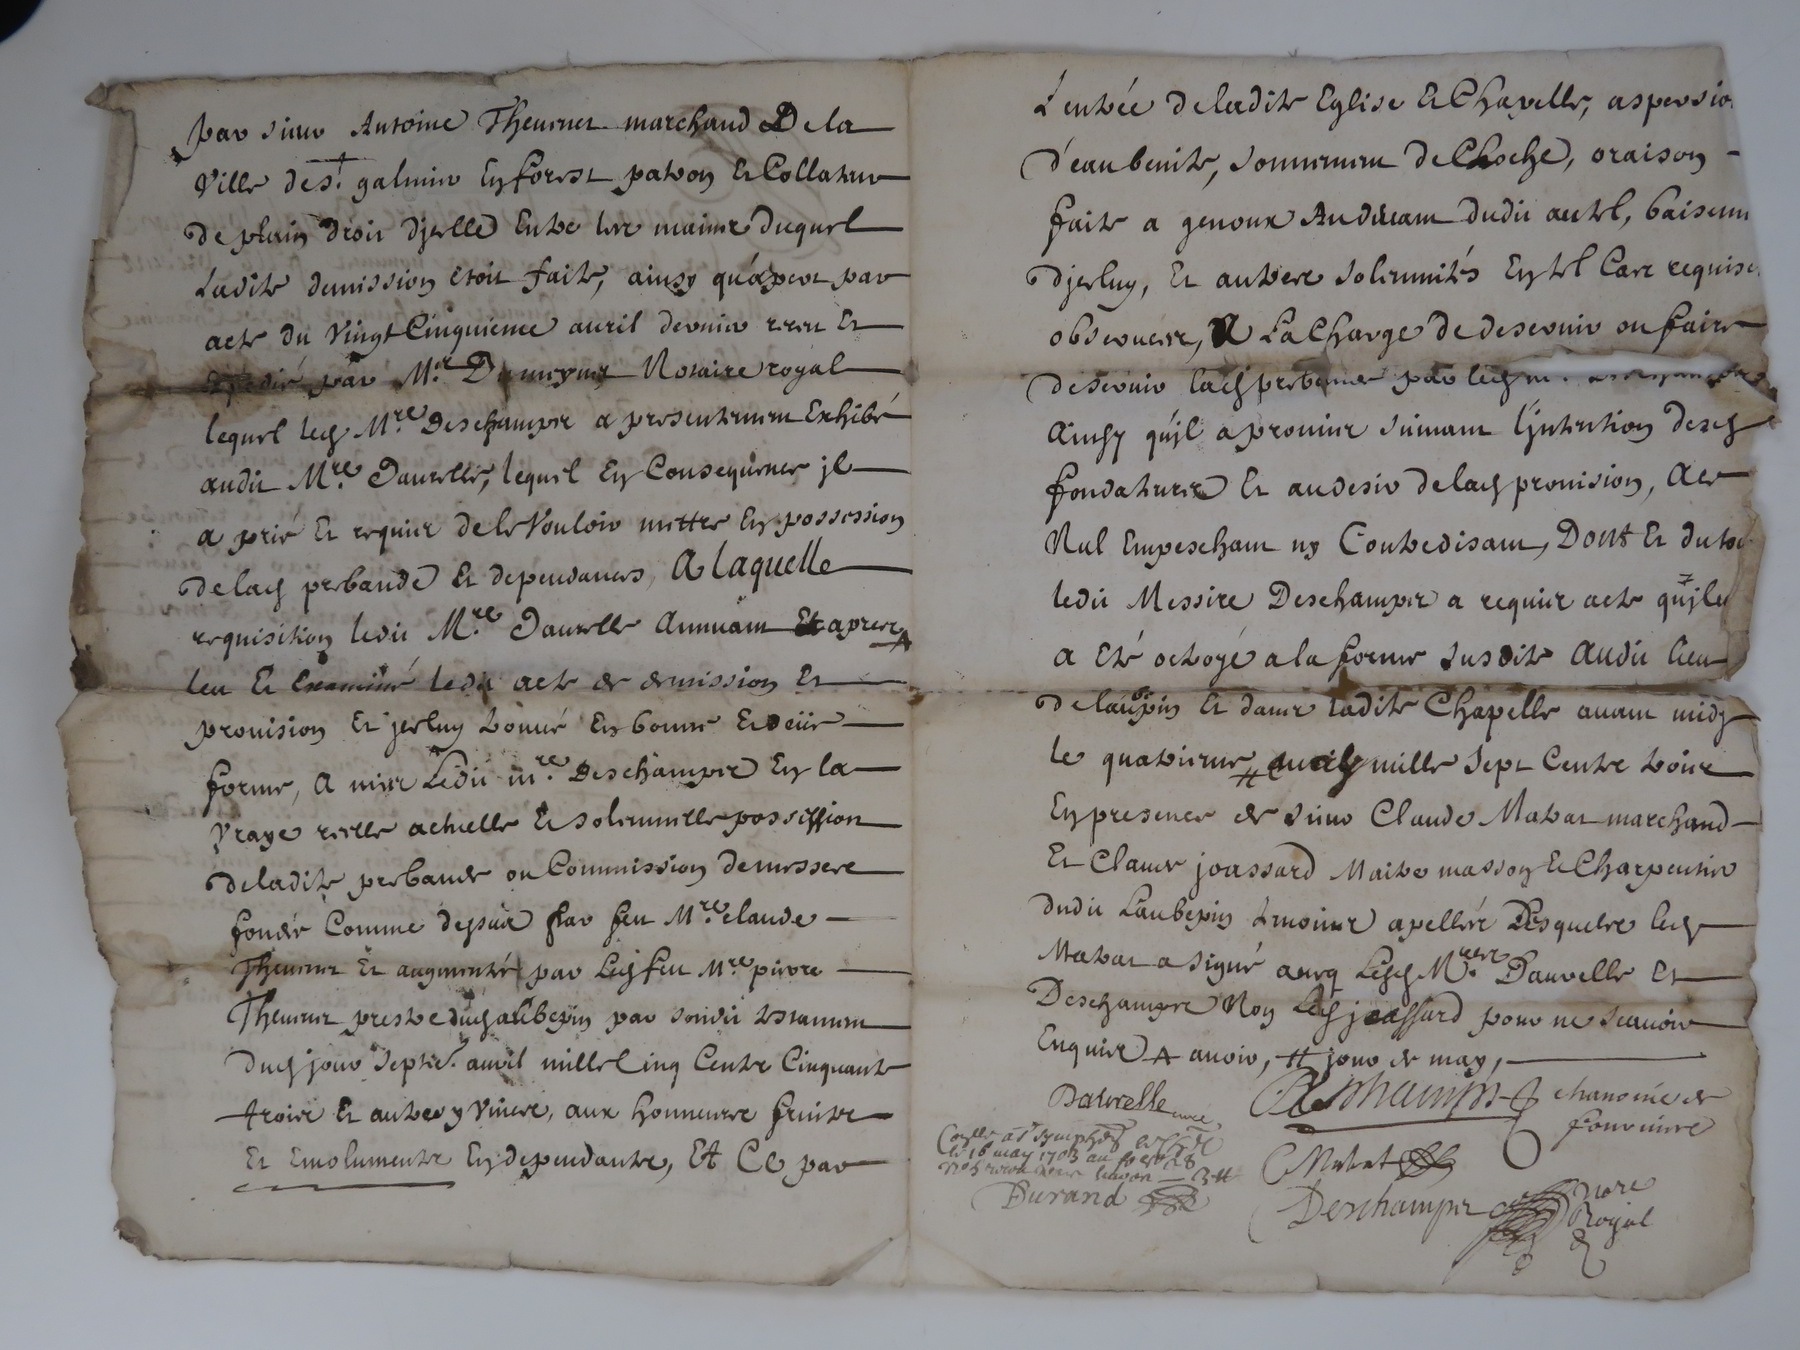 par sieur Antoine Theuenet marchand De la
Ville de st galmier En forest patron Et Collateur
de plain droit d'jcelle Entre les mains duquel
Ladite demission etoit faite, ainsy qu'apert par
acte du Vingt Cinquieme auril dernier receu Et
Expedié par Mr Notaire royal
lequel led Mre Deschamps a presentement Exhibé
audit Mre Daurelle, lequel En Consequence jl
a prié Et requis de le Vouloir mettre En possession
de lad prebande Et dependances, A laquelle
requisition ledit Mre Daurelle Annuant Et apres A
leu Et Examiné ledit acte de demission Et
prouision Et jcelluy trouué En bonne Et deüe
forme, A mis Ledit mre Deschamps En la
Vraye reelle actuelle Et solemnelle possession
de ladite prebande ou Commission de messes
fondée Comme dessus par feu Mre Claude
Theuenet Et augmentée par Led feu Mre pierre
Theuenet prestre dud Laubepin par sondit testament
dud jour septie. auril mille Cinq Cents Cinquante
trois Et autres y Vnies, aux honneurs fruits
Et Emoluments En dependants, Et Ce par
L'entrée de ladite Eglise Et Chapelle, aspersio
d'eau benite, sonnement de Cloche, oraison
faite a genoux Au deuant dudit autel, baisem
d'jceluy, Et autres solemnités En tel Cas requise
obseruées, A La Charge de deseruir ou faire
deseruir lad prebande par led m. Deschamps
Ainsy qu'jl a promis suiuant l'jntention desd
fondateurs Et au desir de lad prouision, A ce
Nul Empeschant ny Contredisant, Dont Et du to
ledit Messire Deschamps a requis acte qu'jlu
a Eté octroyé a la forme susdite Audit lieu
de laubpin Et dans ladite Chapelle auant midy
le quatrieme # mille sept Cents trois
En presence de sieur Claude Matrat marchand
Et Claude joassard Maitre masson Et Charpentier
dudit Laubepin temoins apellés Desquels led
Matrat a signé auec Lesd Mres Daurelle Et
Deschamps Non Led joassard pour ne scauoir
Enquis A auoir, # jour de may,
Daurelle curé
Deschamps chanoine de
fouruiere
Matrat
Collé a st symphn
le 16 may 1703 au
Durand
Deschamps nore
Royal